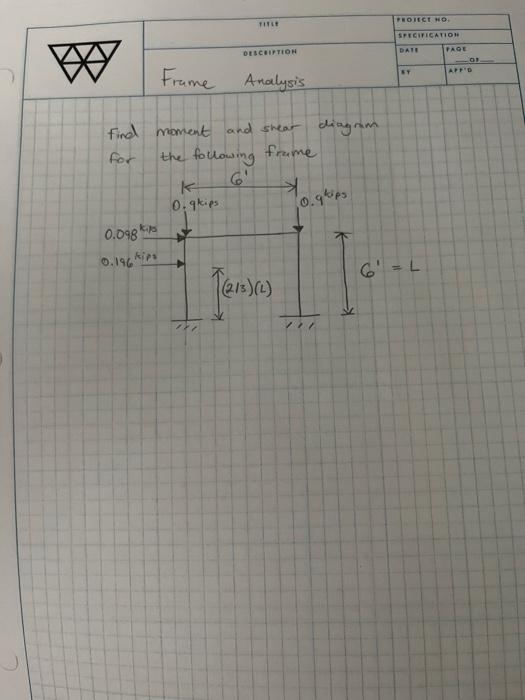 TITLE
PROJECT NO.
SPECIFICATION
DESCRIPTION
DATE
PAGE
OF
BY
APP'D
Frame Analysis
Find moment and shear diagram
for the following frame
6'
0.9kips
0.9kips
0.098kips
0.196kips
(2/3)(L)
6' = L